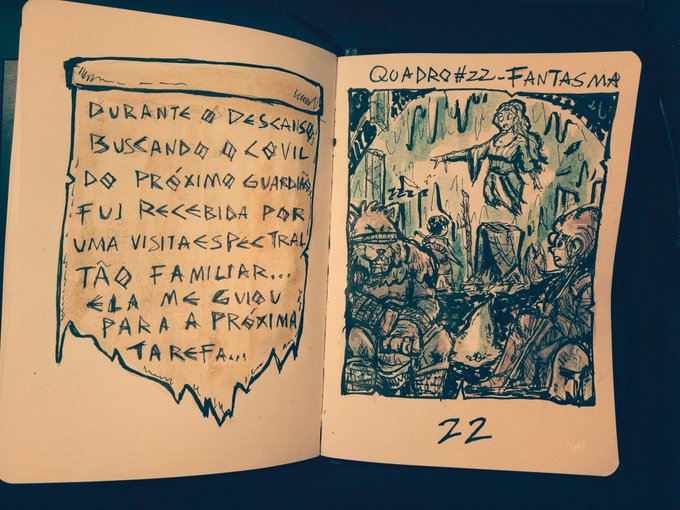 DURANTE O DESCANSO,
BUSCANDO O COVIL
DO PRÓXIMO GUARDIÃO,
FUI RECEBIDA POR
UMA VISITA ESPECTRAL
TÃO FAMILIAR...
ELA ME GUIOU
PARA A PRÓXIMA
TAREFA...
QUADRO#22-FANTASMA
zzzz
22